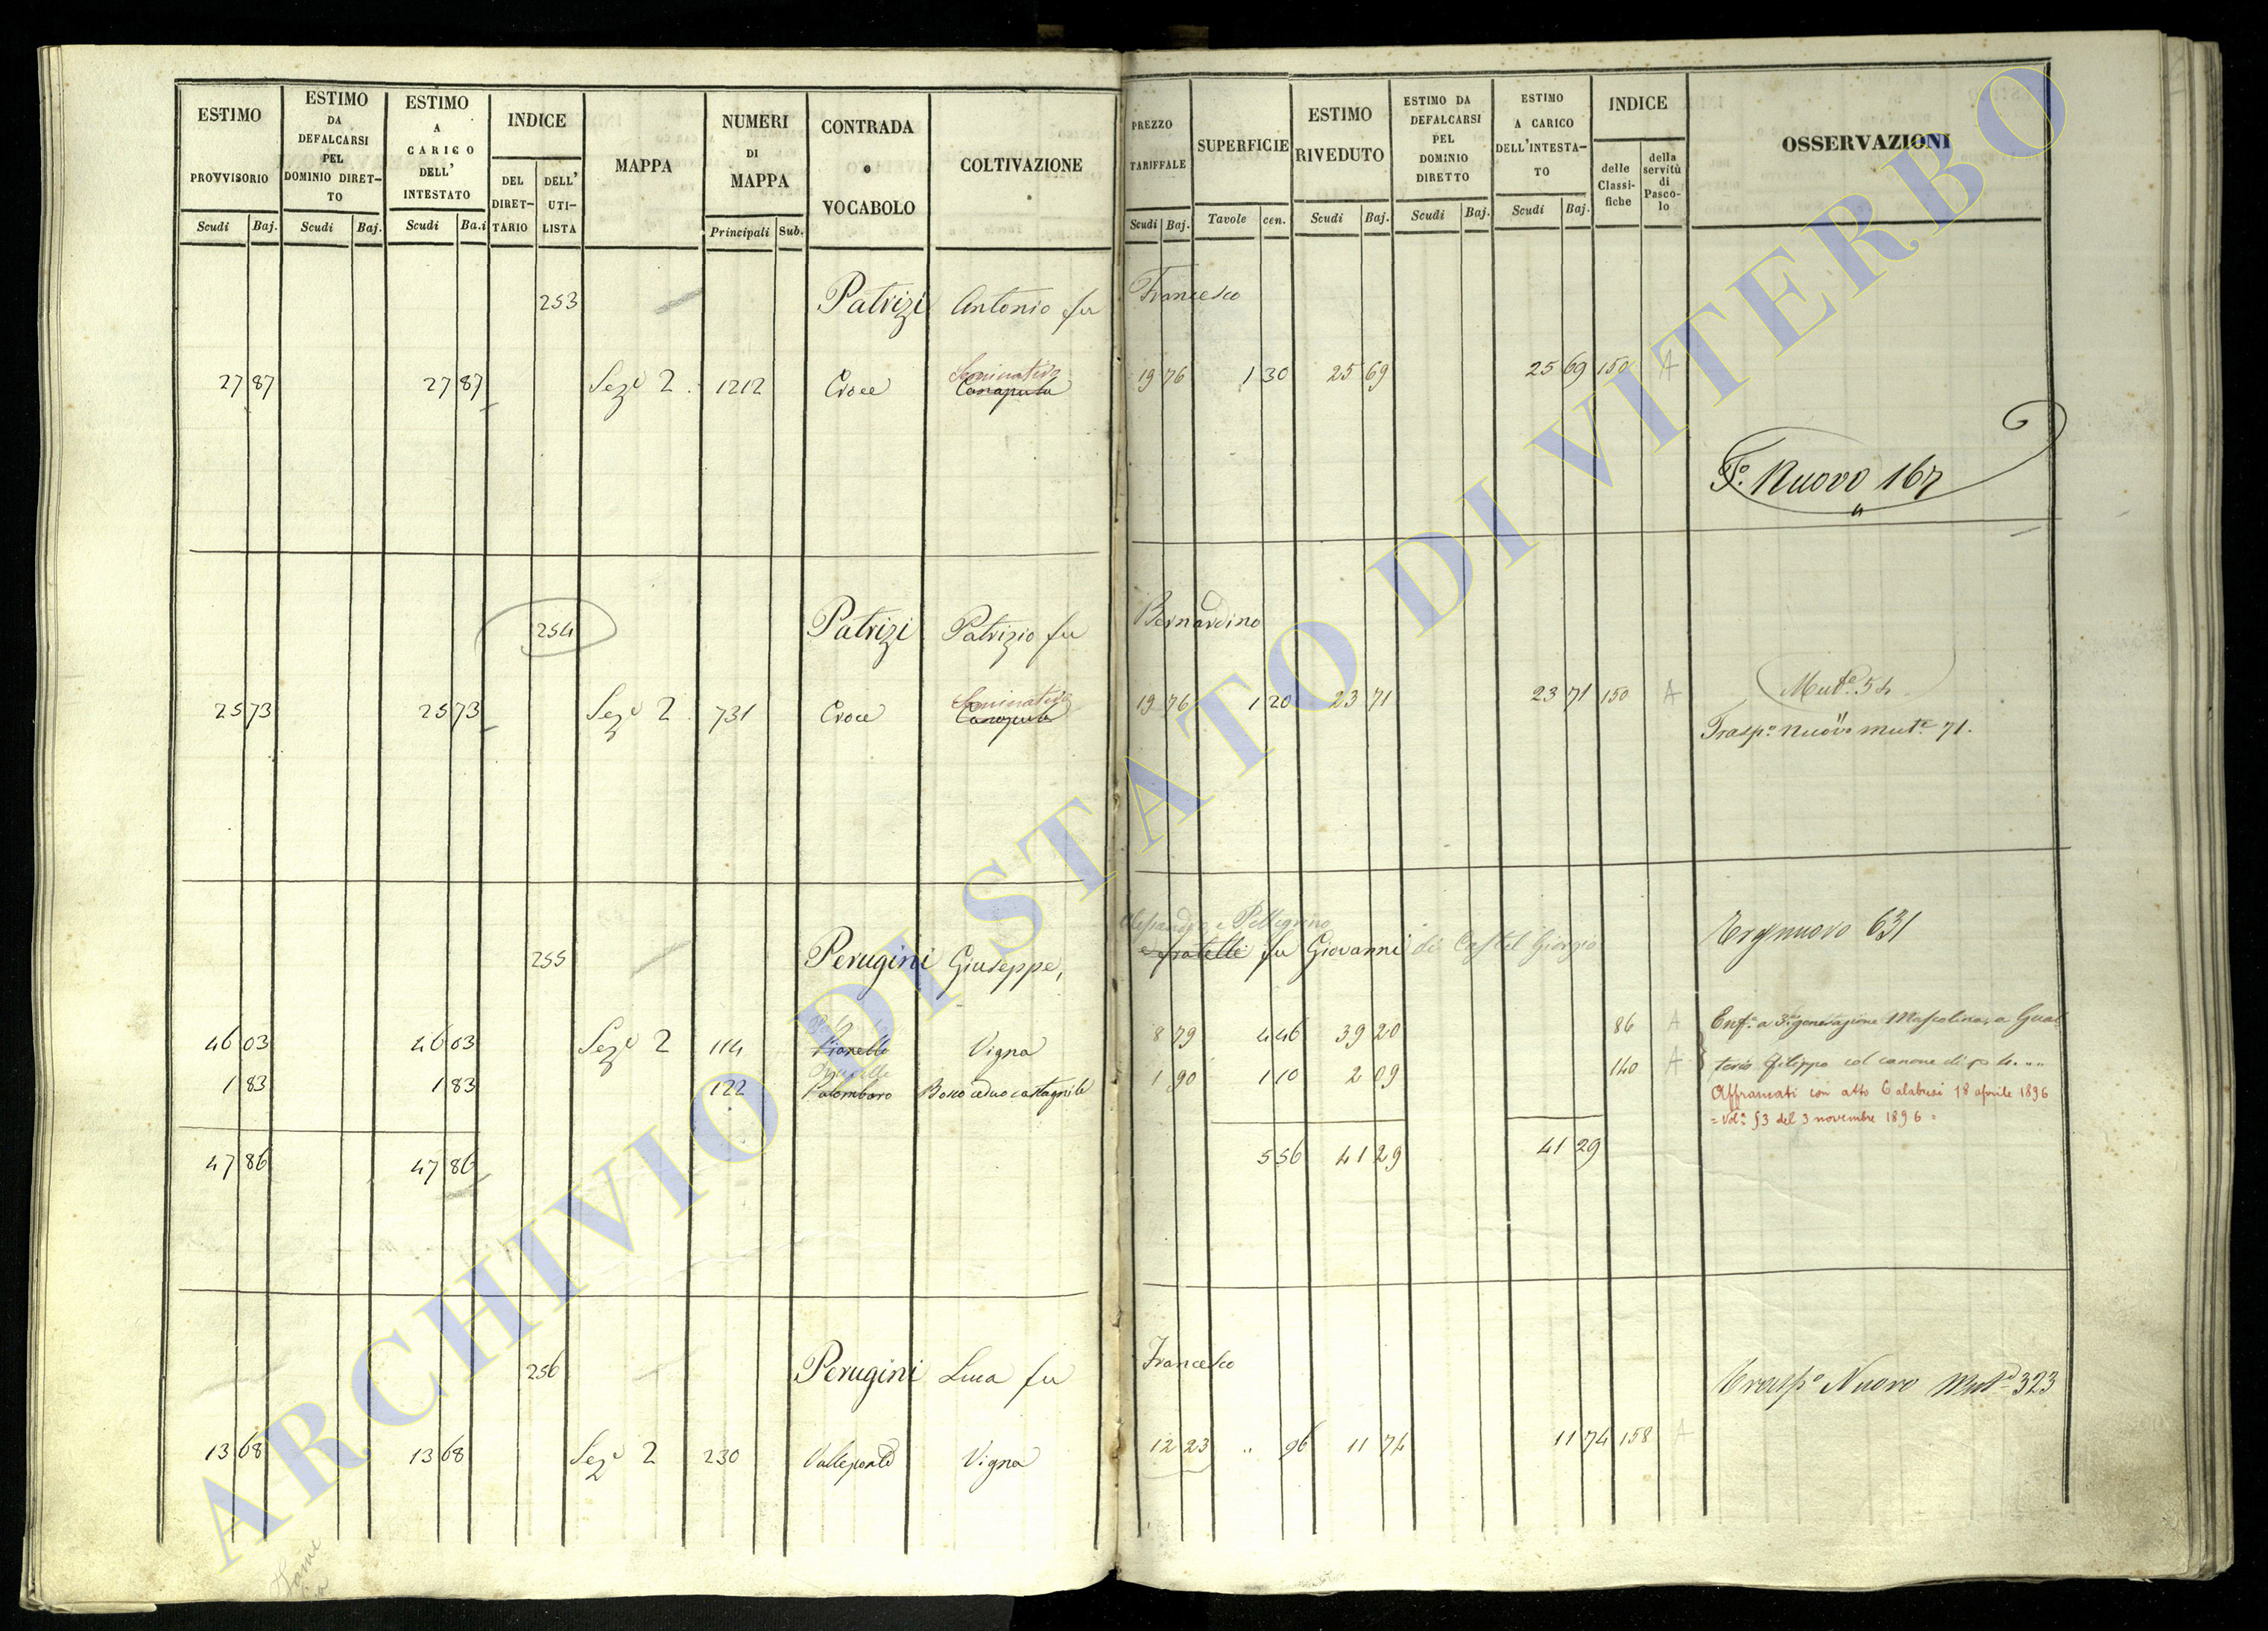 ESTIMO PROVVISORIO
ESTIMO DA DEFALCARSI PEL DOMINIO DIRET-TO
ESTIMO A CARICO DELL' INTESTATO
INDICE
DEL DIRET-TARIO
DELL' UTI-LISTA
MAPPA
NUMERI DI MAPPA
CONTRADA o VOCABOLO
COLTIVAZIONE
PREZZO TARIFFALE
SUPERFICIE
ESTIMO RIVEDUTO
ESTIMO DA DEFALCARSI PEL DOMINIO DIRETTO
ESTIMO A CARICO DELL'INTESTA-TO
INDICE
delle Classi-fiche
della servitù di Pasco-lo
OSSERVAZIONI
Scudi Baj. Scudi Baj. Scudi Ba.i Principali Sub. Scudi Baj. Tavole cen. Scudi Baj. Scudi Baj. Scudi Baj.
253 Patrizi Antonio fu Francesco
Seminativo
27 87 27 87 Seze 2 1212 Croce Canapula 19 76 1 30 25 69 25 69 150 A
Fo. Nuovo 167
254 Patrizi Patrizio fu Bernardino
Seminativo
25 73 25 73 Seze 2 731 Croce Canapula 19 76 1 20 23 71 23 71 150 A Mute 54
Traspo nuovo mute 71.
Alessandro e Pellegrino
255 Perugini Giuseppe, e fratelli fu Giovanni di Castel Giorgio
Trasp nuovo 631
46 03 46 03 Seze 2 114 Pianello Vigna 8 79 4 46 39 20 86 A Enfa a 3a generazione Mascolina, a Gual
1 83 1 83 122 Palombaro Bosco ceduo castagnile 1 90 1 10 2 09 140 A terio Filippo col canone di
Affrancati con atto Calabresi 18 aprile 1896
= Vola 53 del 3 novembre 1896 =
47 86 47 86 5 56 41 29 41 29
256 Perugini Luca fu Francesco
Traspo Nuovo Muta 323
13 68 13 68 Seze 2 230 Vigna 12 23 " 96 11 74 11 74 158 A
ARCHIVIO DI STATO DI VITERBO